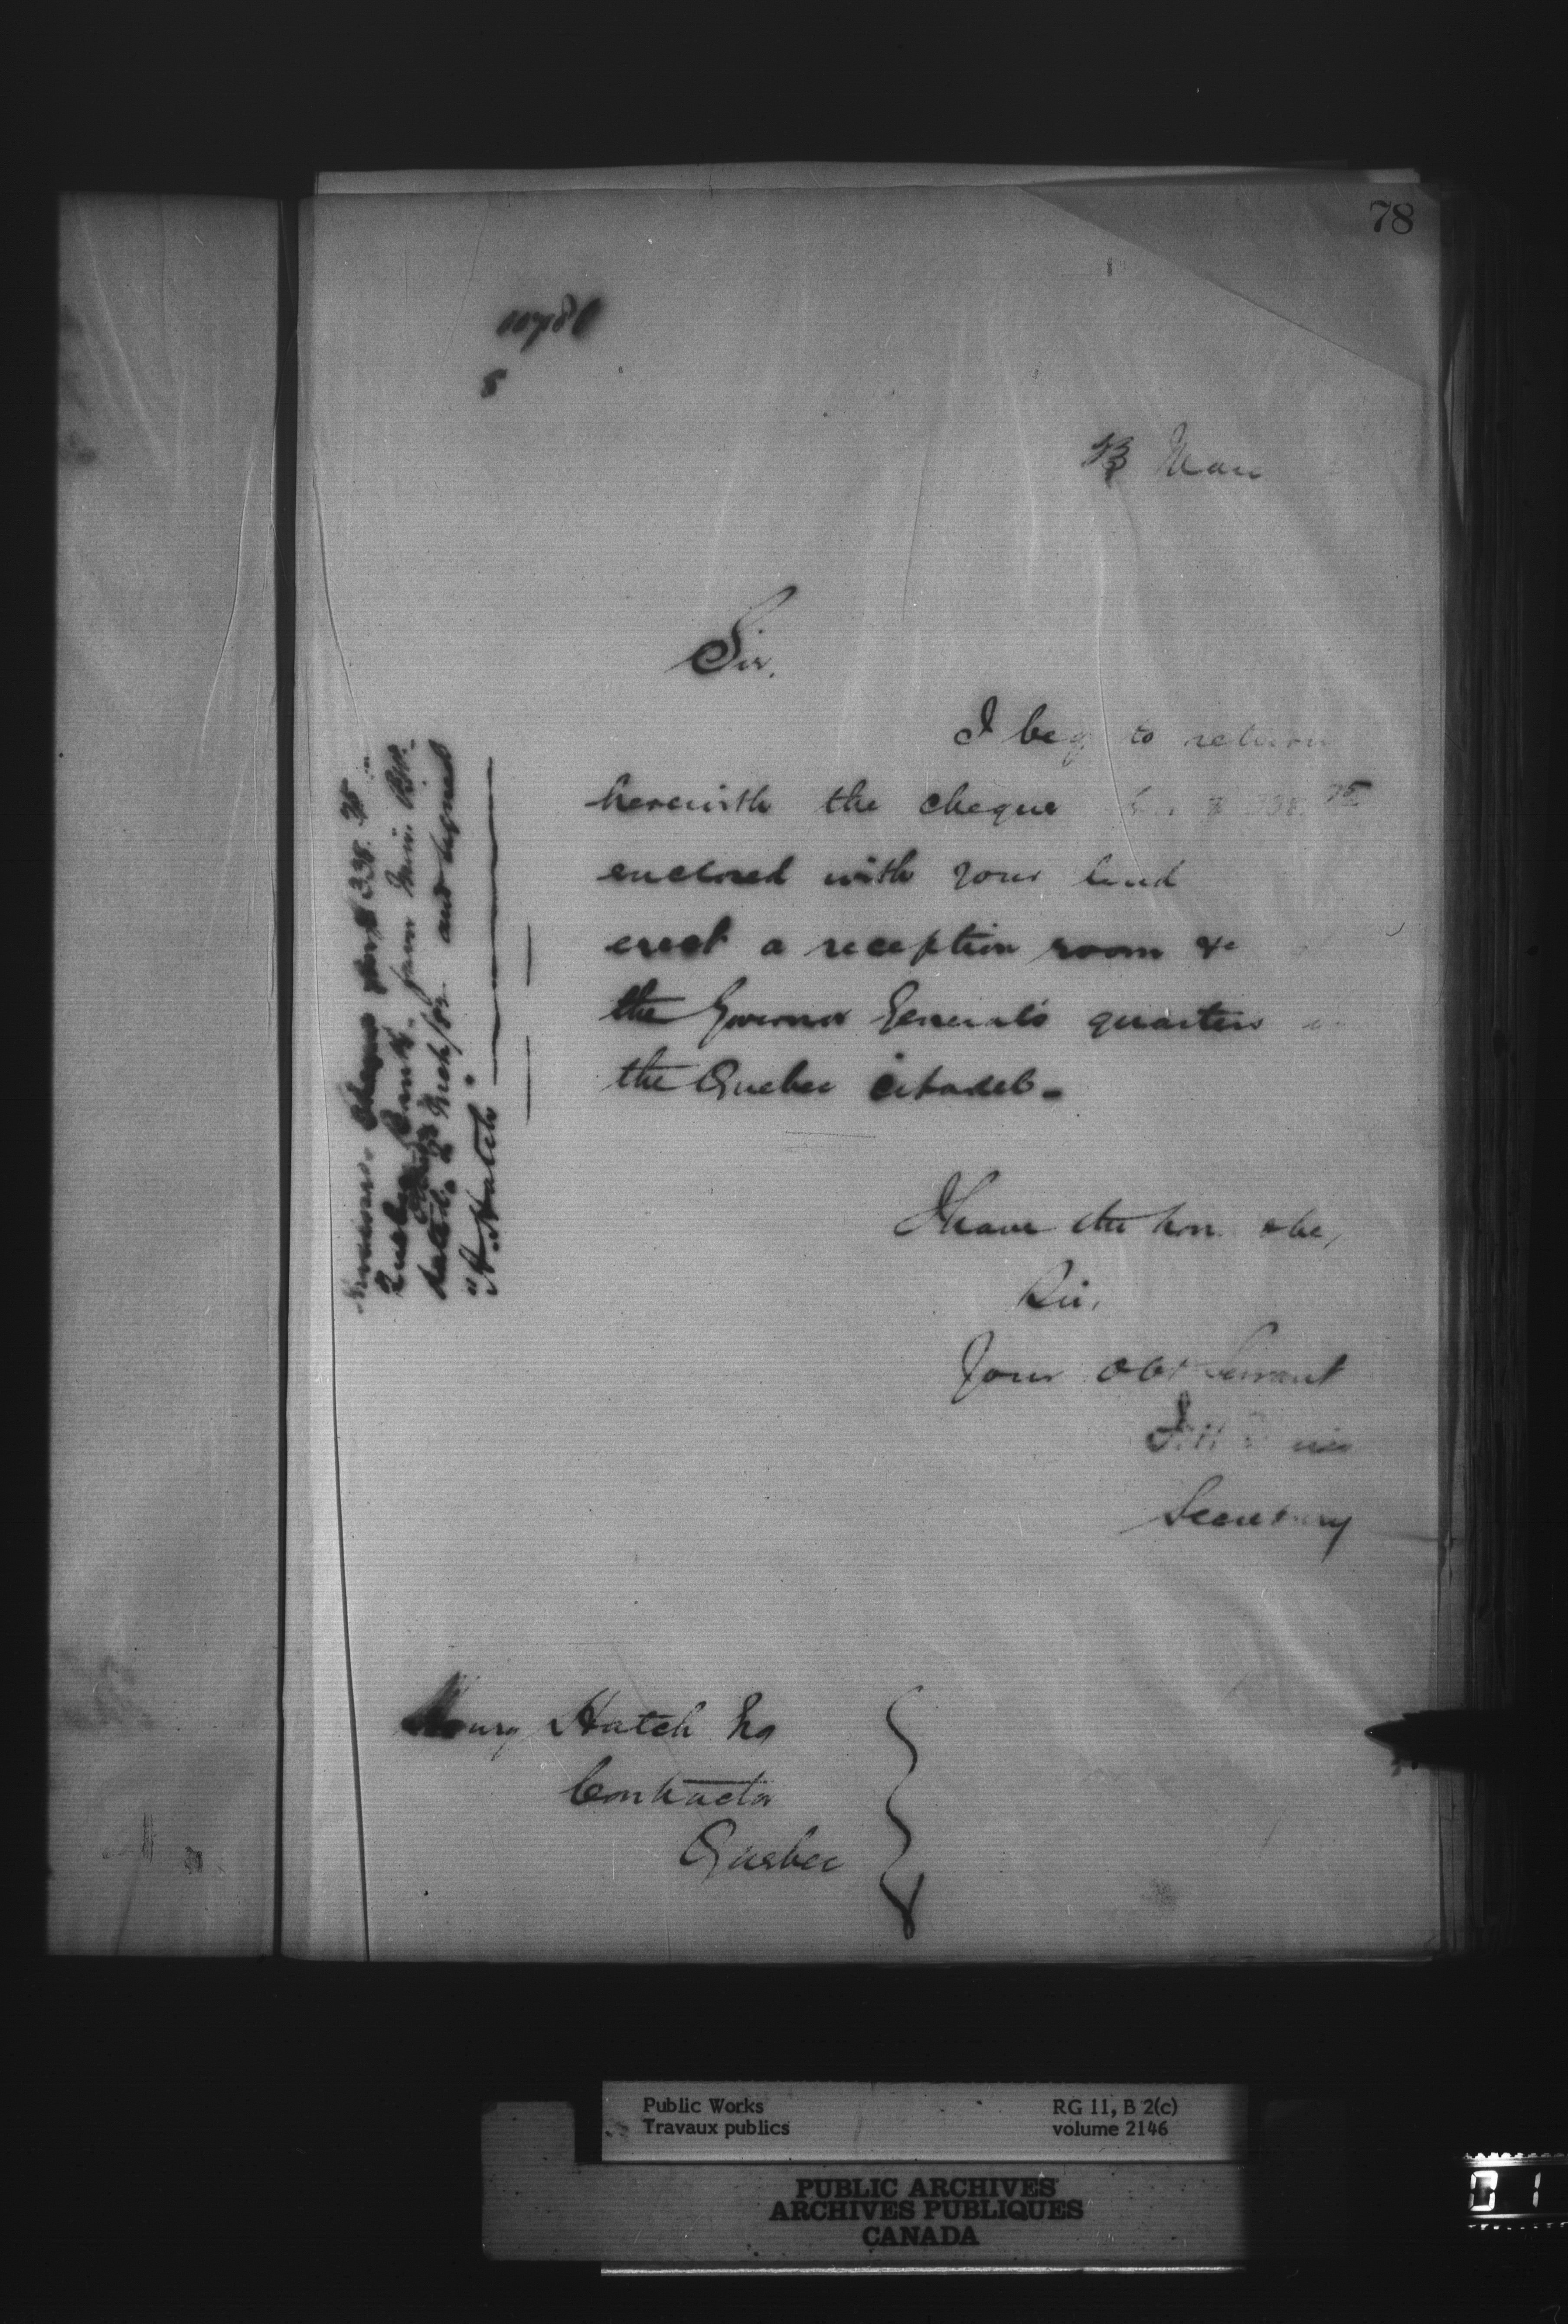 78
8
13 Mar
Sir,
I beg to return
herewith the cheque for $338.75
enclosed with your tend
erect a reception room &c
the Governor General's quarters in
the Quebec Citadel -
I have the hon. & be,
Sir,
Your Obt Servant
Secretary
Cheque for $338.75
Quebec Bank, from
and signed
"H. Hatch"
Henry Hatch Esq
Contractor
Quebec
Public Works
Travaux publics
RG 11, B 2(c)
volume 2146
PUBLIC ARCHIVES
ARCHIVES PUBLIQUES
CANADA
01